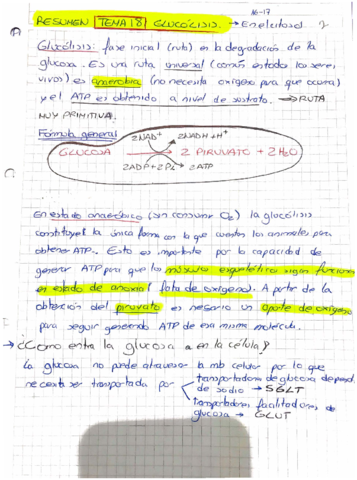 16-17
RESUMEN TEMA 8 GLUCÓLISIS. → En el citosol
Glucólisis: fase inicial (ruta) en la degradación de la
glucosa. Es una ruta universal (común en todos los seres
vivos) es anaerobia (no necesita oxígeno para que ocurra)
y el ATP es obtenido a nivel de sustrato. → RUTA
MUY PRIMITIVA.
Fórmula general
2NAD+ 2NADH+H+
GLUCOSA → 2 PIRUVATO + 2H2O
2ADP+2Pi 2ATP
En estado anaeróbico (sin consumir O2) la glucólisis
constituye la única forma con la que cuentan los animales para
obtener ATP. Esto es importante por la capacidad de
generar ATP para que los músculos esqueléticos sigan funcionando
en estado de anoxia (falta de oxígeno). A partir de la
obtención del piruvato es nesario un aporte de oxígeno
para seguir generando ATP de esa misma molécula.
→ ¿Como entra la glucosa en la célula?
La glucosa no puede atravesar la mb celular por lo que
necesita ser transportada por transportadores de glucosa
de sodio → SGLT
transportadores facilitadores de
glucosa → GLUT